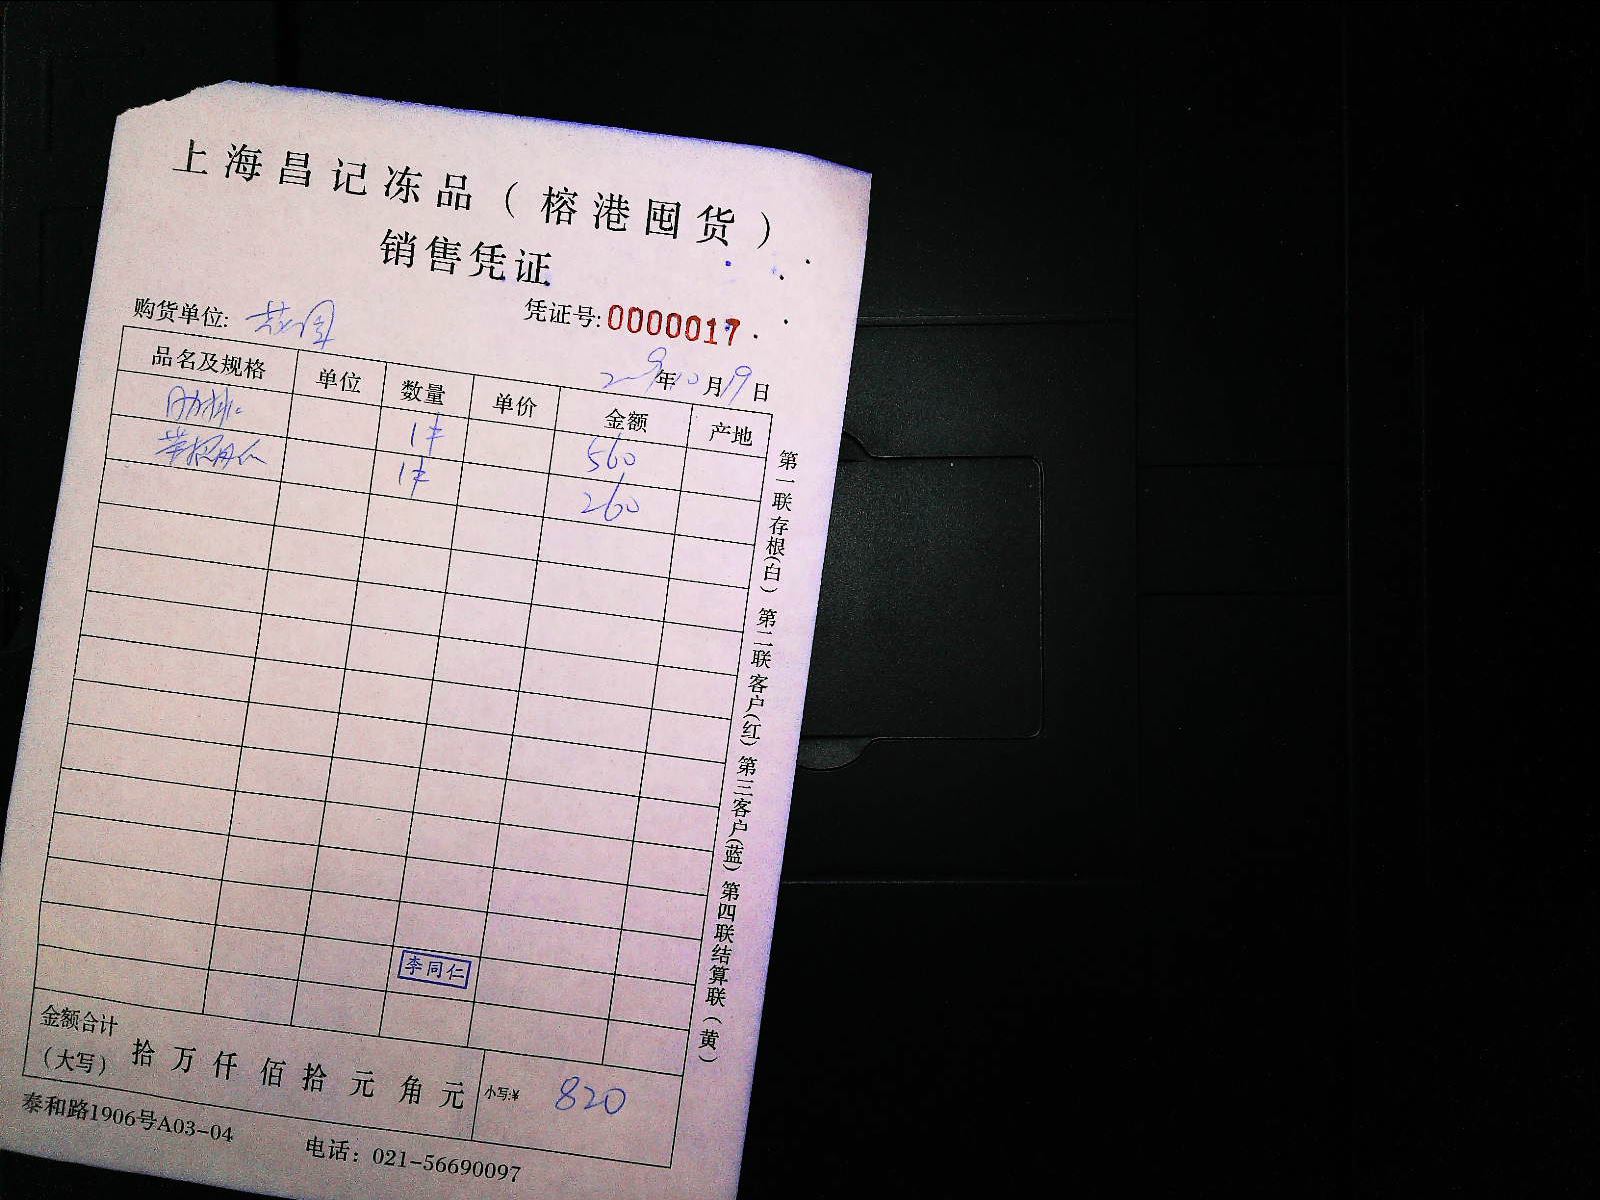 上海昌记冻品（榕港囤货）
销售凭证
购货单位:
凭证号:0000017
29年10月19日
品名及规格 单位 数量 单价 金额 产地
肋排 1件 560
1件 260
李同仁
金额合计（大写） 拾万仟佰拾元角元 小写:¥ 820
泰和路1906号A03-04 电话：021-56690097
第一联存根(白) 第二联客户(红) 第三客户(蓝) 第四联结算联(黄)